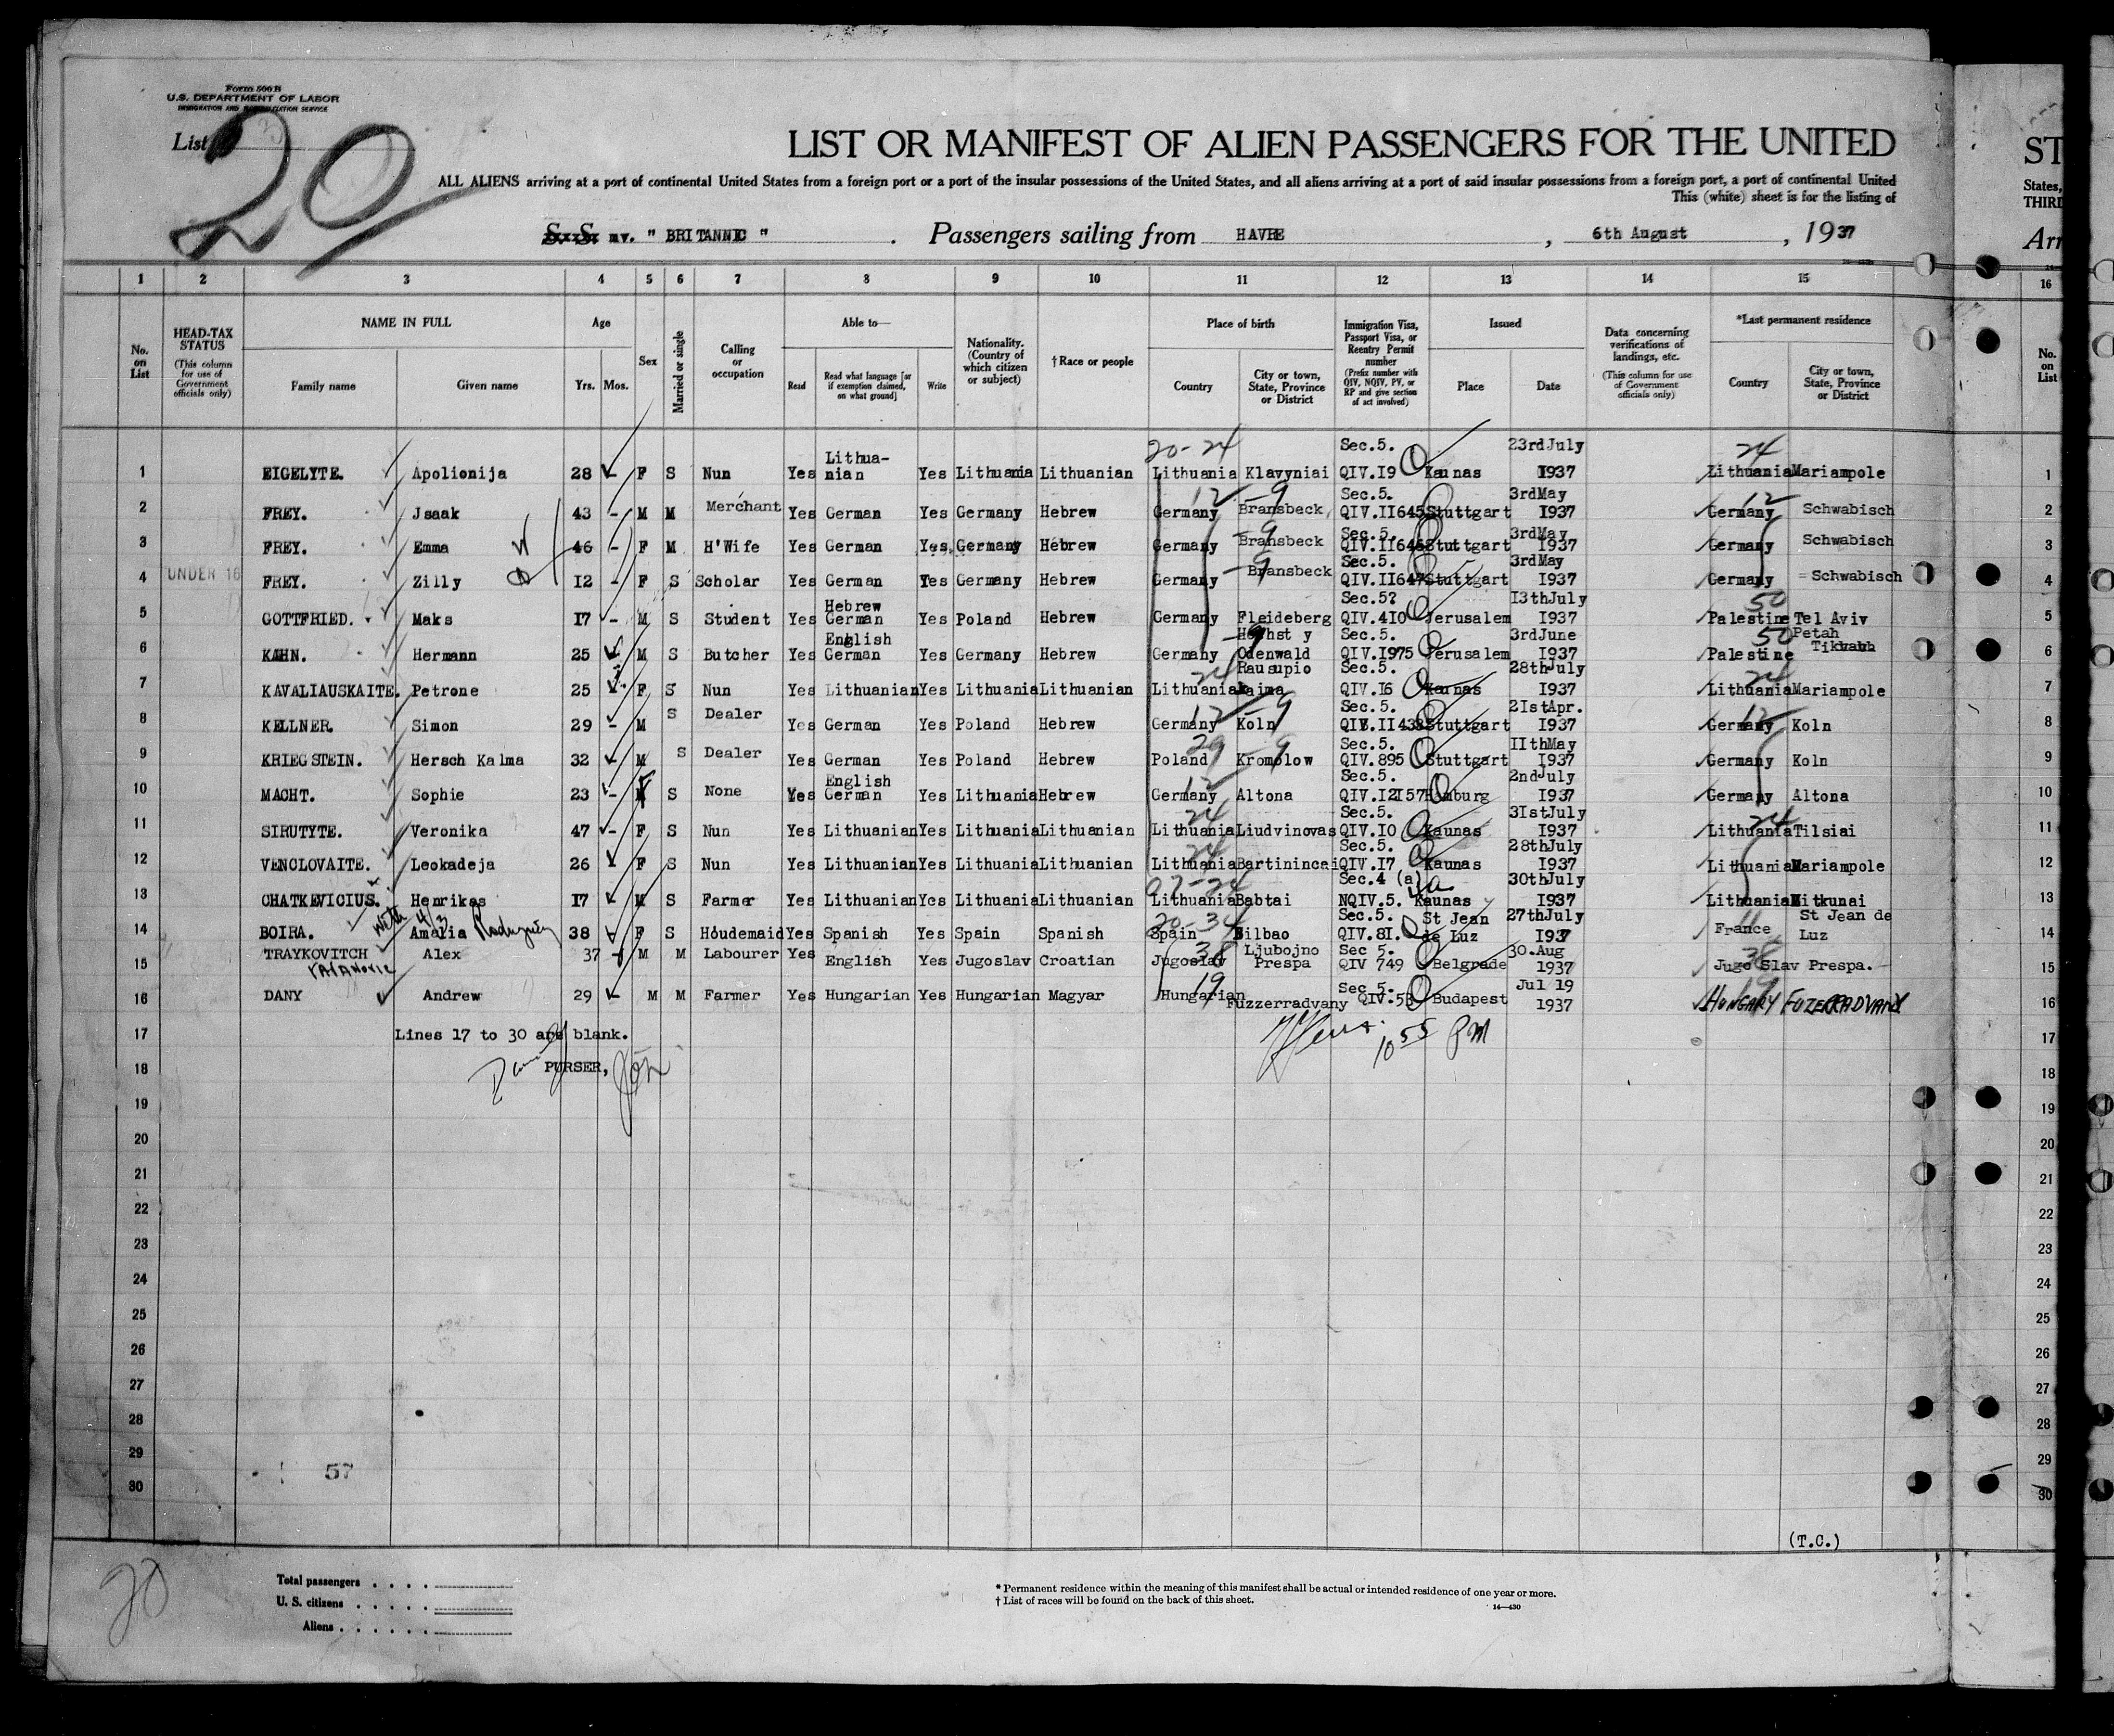 Form 500 B
U.S. DEPARTMENT OF LABOR
IMMIGRATION AND NATURALIZATION SERVICE
List 20
LIST OR MANIFEST OF ALIEN PASSENGERS FOR THE UNITED
ALL ALIENS arriving at a port of continental United States from a foreign port or a port of the insular possessions of the United States, and all aliens arriving at a port of said insular possessions from a foreign port, a port of continental United
This (white) sheet is for the listing of
S. S. mv. " BRITANNIC " . Passengers sailing from HAVRE , 6th August , 1937
ST
States,
THIRD
Arr
1 2 3 4 5 6 7 8 9 10 11 12 13 14 15 16
No. on List
HEAD-TAX STATUS (This column for use of Government officials only)
NAME IN FULL
Family name Given name
Age
Yrs. Mos.
Sex
Married or single
Calling or occupation
Able to—
Read Read what language [or if exemption claimed, on what ground] Write
Nationality. (Country of which citizen or subject)
†Race or people
Place of birth
Country City or town, State, Province or District
Immigration Visa, Passport Visa, or Reentry Permit number (Prefix number with QIV, NQIV, PV, or RP and give section of act involved)
Issued
Place Date
Data concerning verifications of landings, etc. (This column for use of Government officials only)
*Last permanent residence
Country City or town, State, Province or District
No. on List
20-24 24
1 EIGELYTE. Apolionija 28 - F S Nun Yes Lithua-nian Yes Lithuania Lithuanian Lithuania Klavyniai Sec.5. QIV.I9 Kaunas 23rdJuly I937 Lithuania Mariampole 1
12-9 12
2 FREY. Jsaak 43 - M M Merchant Yes German Yes Germany Hebrew Germany Bransbeck Sec.5. QIV.II645 Stuttgart 3rdMay I937 Germany Schwabisch 2
3 FREY. Emma 46 - F M H'Wife Yes German Yes Germany Hebrew Germany Bransbeck -9 Sec.5. QIV.II646 Stuttgart 3rdMay I937 Germany Schwabisch 3
4 UNDER 16 FREY. Zilly I2 - F S Scholar Yes German Yes Germany Hebrew Germany Bransbeck -9 QIV.II647 Stuttgart 3rdMay I937 Germany Schwabisch 4
5 GOTTFRIED. Maks I7 - M S Student Yes Hebrew German Yes Poland Hebrew Germany Fleideberg Sec.5? QIV.4I0 Jerusalem I3thJuly I937 50 Palestine Tel Aviv 5
6 KAHN. Hermann 25 - M S Butcher Yes English German Yes Germany Hebrew Germany Odenwald -9 Sec.5. QIV.I975 Jerusalem 3rdJune I937 50 Palestine Petah 6
7 KAVALIAUSKAITE. Petrone 25 F S Nun Yes Lithuanian Yes Lithuania Lithuanian 24 Lithuania Rausupio Kaima Sec.5. QIV.I6 Kaunas 28thJuly I937 24 Lithuania Mariampole 7
8 KELLNER. Simon 29 - M S Dealer Yes German Yes Poland Hebrew 12-9 Germany Koln Sec.5. Stuttgart 2IstApr. I937 12 Germany Koln 8
9 KRIEGSTEIN. Hersch Kalma 32 - M S Dealer Yes German Yes Poland Hebrew 29-9 Poland Kromolow Sec.5. QIV.895 Stuttgart IIthMay I937 Germany Koln 9
10 MACHT. Sophie 23 - F S None Yes English German Yes Lithuania Hebrew 12 Germany Altona Sec.5. QIV.I2I57 Hamburg 2ndJuly I937 Germany Altona 10
11 SIRUTYTE. Veronika 47 - F S Nun Yes Lithuanian Yes Lithuania Lithuanian 24 Lithuania Liudvinovas Sec.5. QIV.I0 Kaunas 3IstJuly I937 24 Lithuania Tilsiai 11
12 VENCLOVAITE. Leokadeja 26 - F S Nun Yes Lithuanian Yes Lithuania Lithuanian 24 Lithuania Bartinincai Sec.5. QIV.I7 Kaunas 28thJuly I937 Lithuania Mariampole 12
13 CHATKEVICIUS. Henrikas I7 M S Farmer Yes Lithuanian Yes Lithuania Lithuanian 07-24 Lithuania Babtai Sec.4 (a) NQIV.5. Kaunas 30thJuly I937 Lithuania Mitkunai 13
14 BOIRA. Amalia 38 F S Houdemaid Yes Spanish Yes Spain Spanish 20-34 Spain Bilbao Sec.5. QIV.8I. St Jean de Luz 27thJuly I937 France St Jean de Luz 14
15 TRAYKOVITCH Alex 37 - M M Labourer Yes English Yes Jugoslav Croatian 38 Jugoslav Ljubojno Prespa Sec 5. QIV 749 Belgrade 30.Aug 1937 38 Jugo Slav Prespa. 15
16 DANY Andrew 29 - M M Farmer Yes Hungarian Yes Hungarian Magyar 19 Hungarian Fuzzerradvany Sec 5. Budapest Jul 19 1937 19 HUNGARY FUZERRADVANY 16
17 Lines 17 to 30 are blank. 10 55 PM 17
18 PURSER, 18
19 19
20 20
21 21
22 22
23 23
24 24
25 25
26 26
27 27
28 28
29 57 29
30 30
(T.C.)
20
Total passengers . . . .
U. S. citizens . . . . .
Aliens . . . . . .
* Permanent residence within the meaning of this manifest shall be actual or intended residence of one year or more.
† List of races will be found on the back of this sheet.
14—430